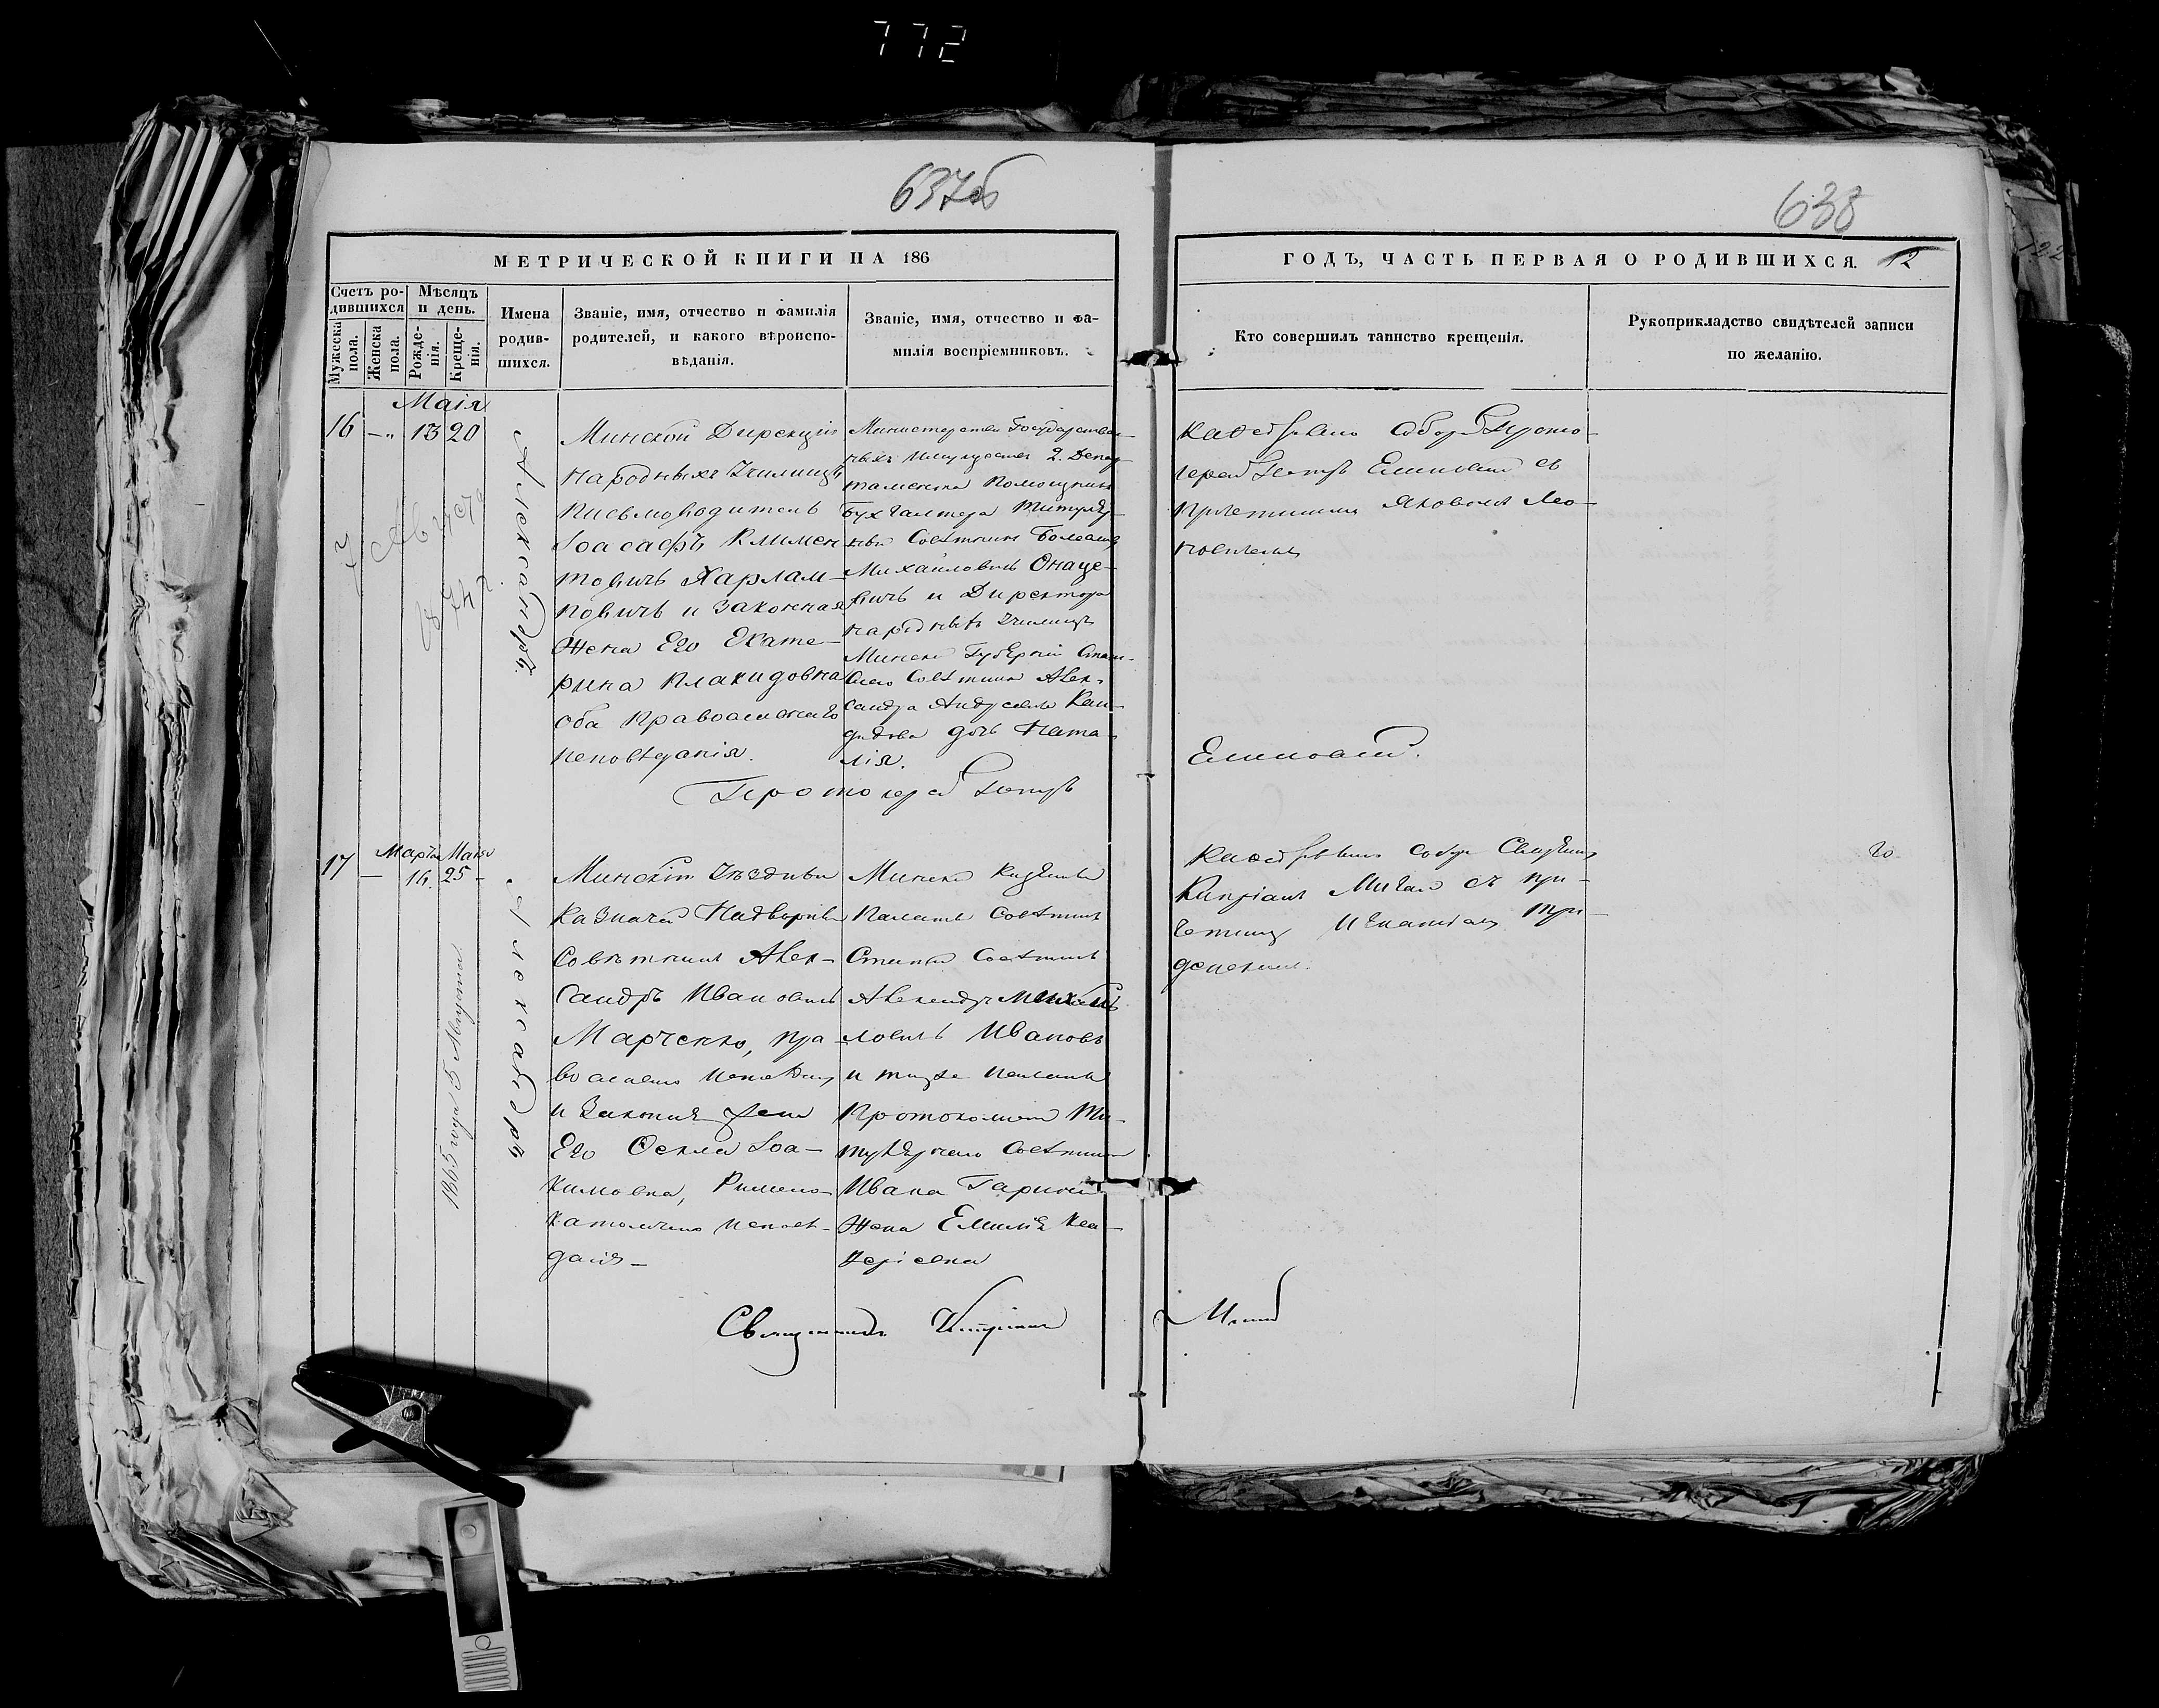 772
637об
638
МЕТРИЧЕСКОЙ КНИГИ НА 186
ГОДЪ, ЧАСТЬ ПЕРВАЯ О РОДИВШИХСЯ.
12
Счетъ ро-
дившихся
Мужеска
пола.
Женска
пола.
Мѣсяцъ
и день.
Рожде-
нія.
Креще-
нія.
Имена
родив-
шихся.
Званіе, имя, отчество и фамилія
родителей, и какого вѣроиспо-
вѣданія.
Званіе, имя, отчество и фа-
милія воспріемниковъ.
Кто совершилъ таинство крещенія.
Рукоприкладство свидѣтелей записи
по желанію.
Маія
16 13 20
Александръ.
Минской Дирекціи
народныхъ Училищъ
Письмоводитель
Іоасафъ Климен
товичъ Харлам-
повичъ и законная
жена Его Екате-
рина Плакидовна
оба Православнаго
исповѣданія.
Министерства Государствен-
ныхъ Имуществъ 2. Депар-
тамента Помощникъ
Бухгалтера Титуляр-
ный Совѣтникъ Болеславъ
Михайловичъ Онаце-
вичъ и Директора
народныхъ Училищъ
Минской Губерніи Стат-
скаго Совѣтника Алек-
сандра
дочь Ната-
лія.
Каѳедральнаго Собора Прото-
іерей Петръ Елиновскій съ
причетникомъ Яковомъ Лео-
Протоіерей Петръ
Елиновскій.
17 Марта Маія
16. 25
1865 года 5 Августа
Александръ
Минскій Уѣздный
Казначей Надворный
Совѣтникъ Алек-
сандръ Ивановичъ
Марченко, пра
вославнаго исповѣданія
и законная жена
Его Ѳекла Іоа-
кимовна, Римско-
католическаго исповѣ-
данія
Минской Казенной
Палаты Совѣтникъ
Статскій Совѣтникъ
Александръ Михай
ловичъ Ивановъ
и тойже палаты
Протоколиста Ти-
тулярнаго Совѣтника
Ивана
жена Емилія
Каѳедральнаго Собора Священникъ
Кипріанъ съ при-
четникомъ Игнатіемъ
Священникъ Кипріанъ